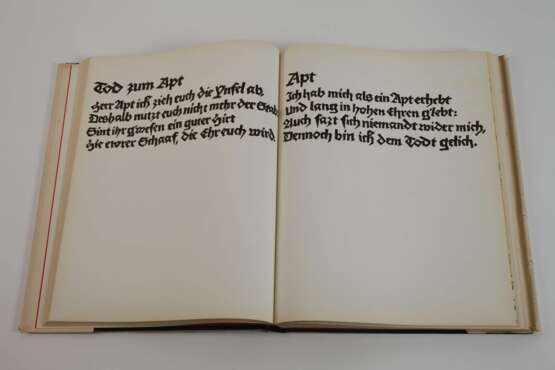 Tod zum Apt
Herr Apt ich zieh euch die Ynfel ab,
Deshalb nutzt euch nicht mehr der Stab:
Sint ihr g'wesen ein guter Hirt
Hie ewrer Schaaf, die Ehr euch wird.
Apt
Ich hab mich als ein Apt erhebt
Und lang in hohen Ehren g'lebt:
Auch sazt sich niemandt wider mich,
Dennoch bin ich dem Todt gelich.